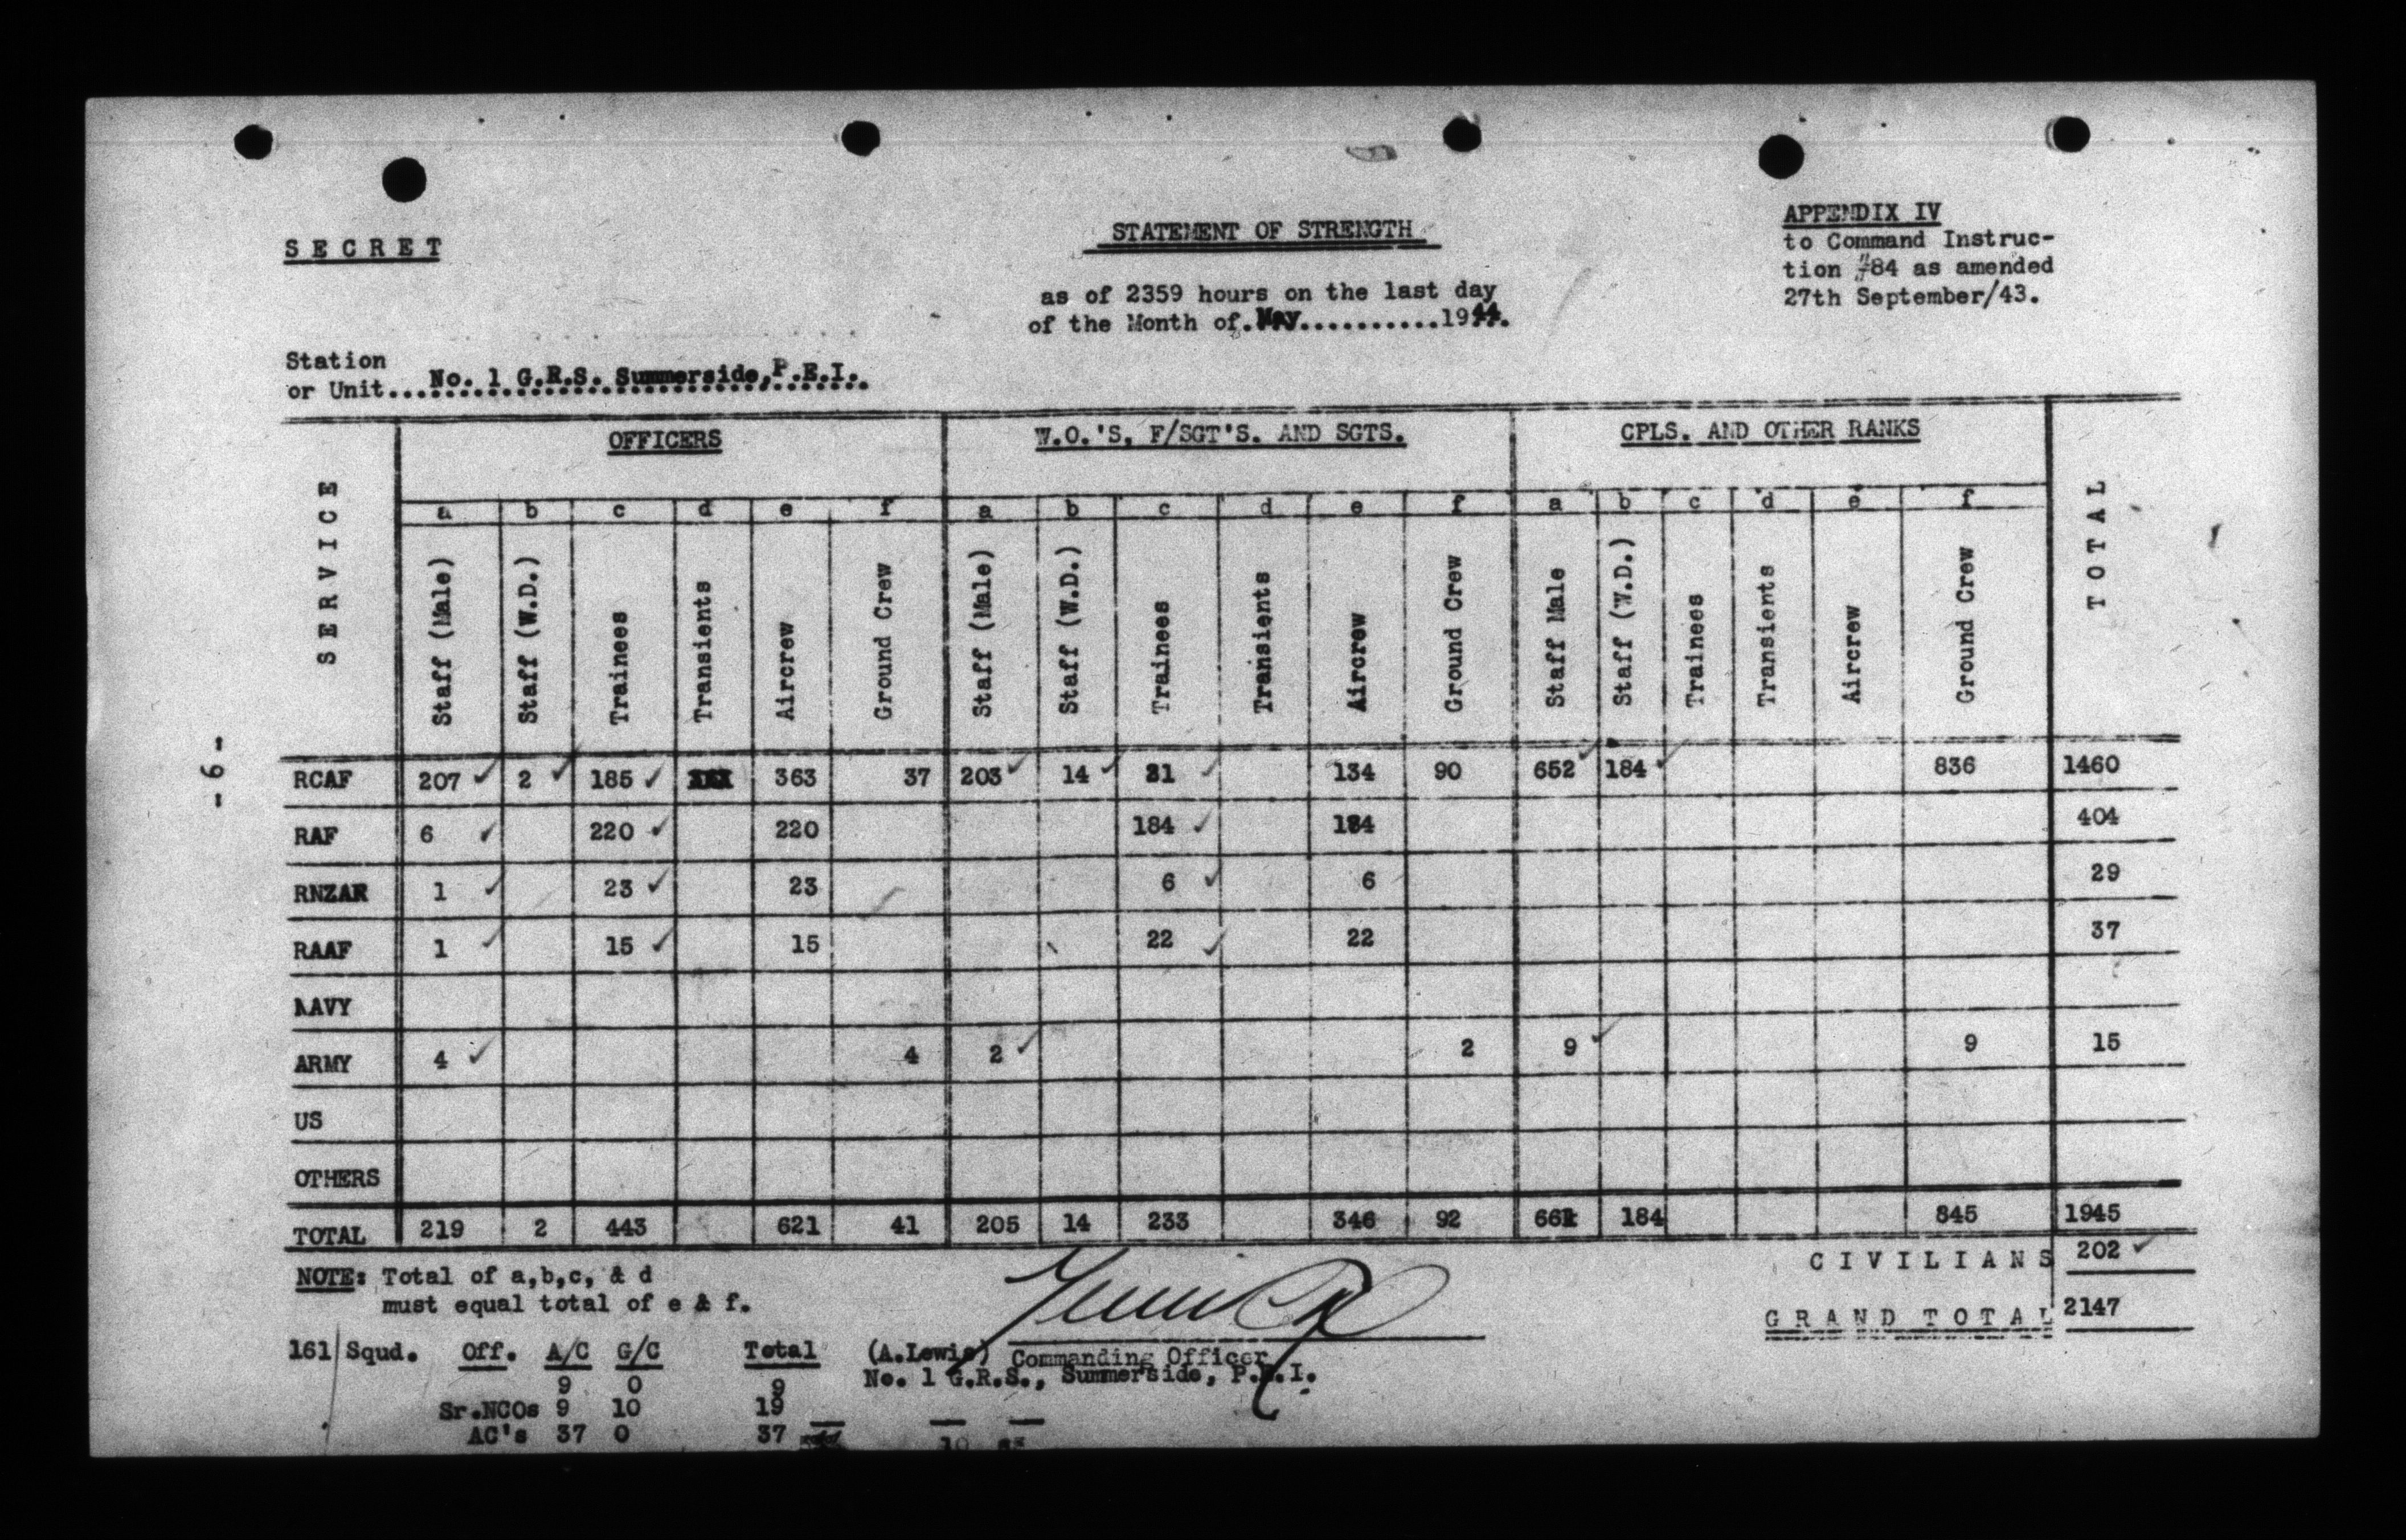 SECRET
STATEMENT OF STRENGTH
as of 2359 hours on the last day
of the Month of.May...........1944.
APPENDIX IV
to Command Instruc-
tion #84 as amended
27th September/43.
Station
or Unit... No. 1 G.R.S. Summerside, P.E.I.
- 6 -
SERVICE OFFICERS W.O.'S, F/SGT'S. AND SGTS. CPLS. AND OTHER RANKS TOTAL
a b c d e f a b c d e f a b c d e f
Staff (Male) Staff (W.D.) Trainees Transients Aircrew Ground Crew Staff (Male) Staff (W.D.) Trainees Transients Aircrew Ground Crew Staff Male Staff (W.D.) Trainees Transients Aircrew Ground Crew
RCAF 207 2 185 363 37 203 14 21 134 90 652 184 836 1460
RAF 6 220 220 184 184 404
RNZAR 1 23 23 6 6 29
RAAF 1 15 15 22 22 37
NAVY
ARMY 4 4 2 2 9 9 15
US
OTHERS
TOTAL 219 2 443 621 41 205 14 233 346 92 661 184 845 1945
CIVILIANS 202
GRAND TOTAL 2147
NOTE: Total of a,b,c, & d
must equal total of e & f.
161 Squd. Off. A/C G/C Total
9 0 9
Sr.NCOs 9 10 19
AC's 37 0 37
(A.Lewis) Commanding Officer
No. 1 G.R.S., Summerside, P.E.I.
10